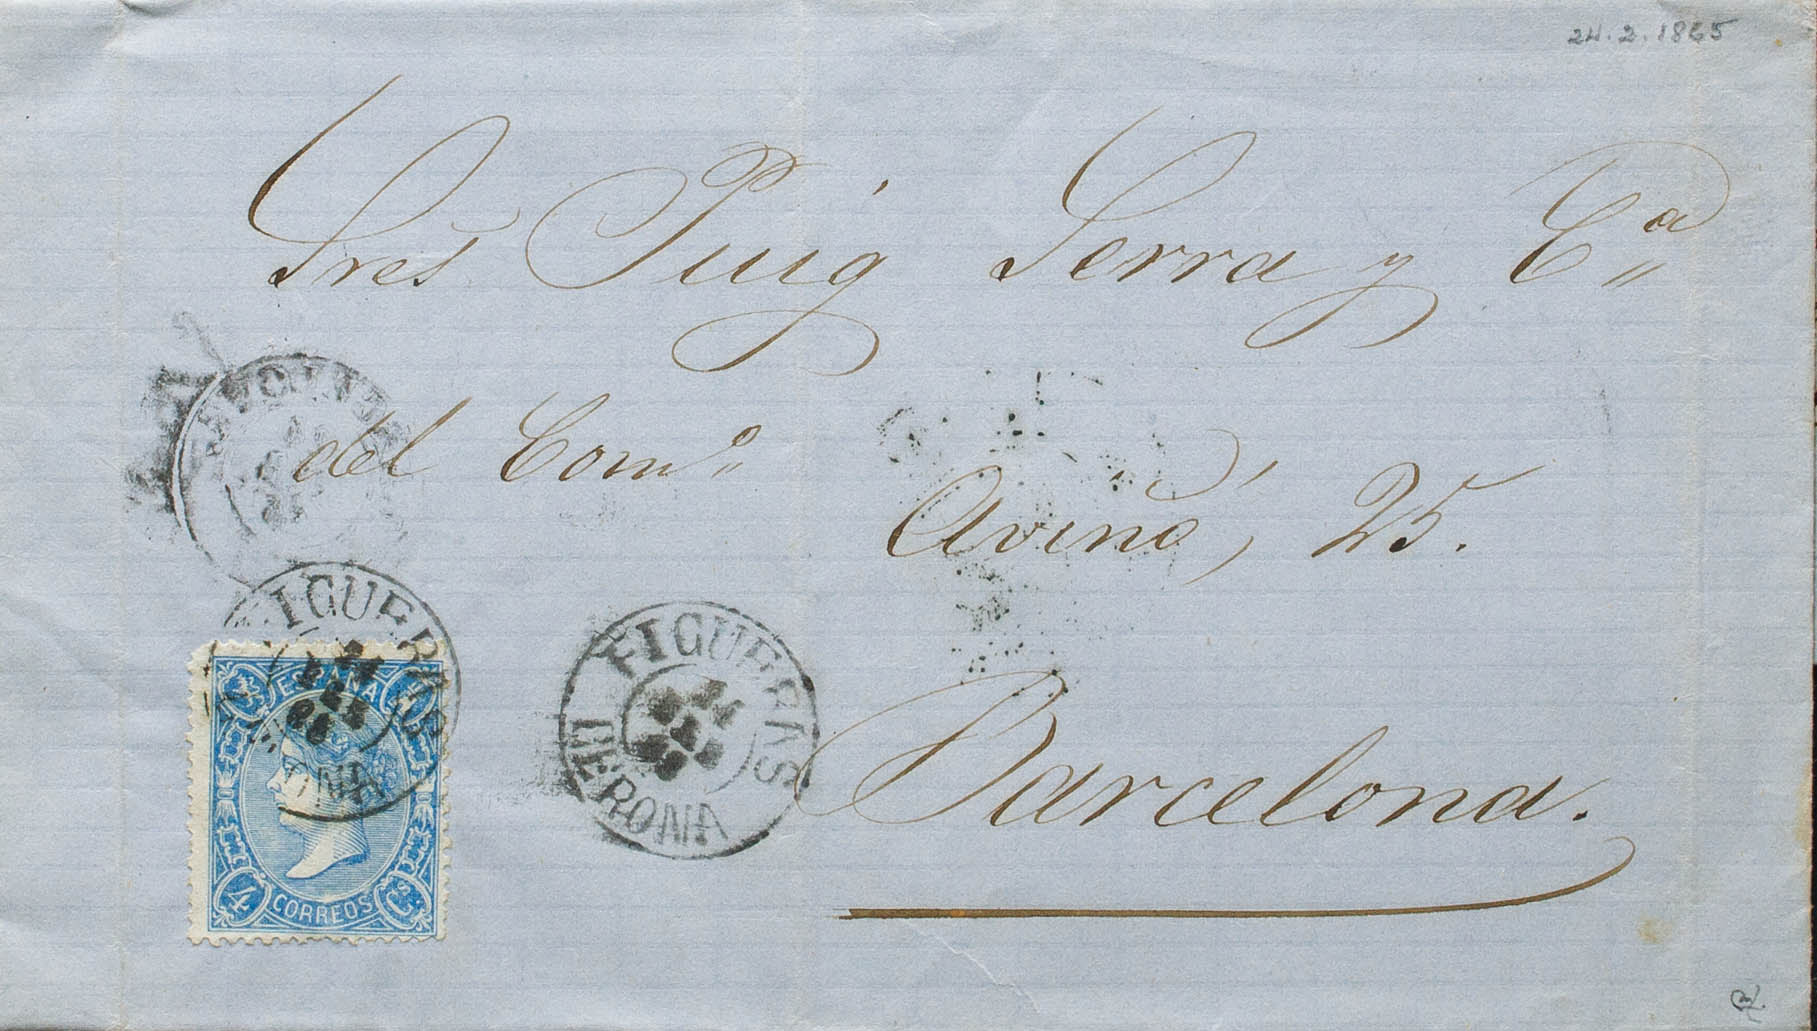 24.2.1865
Sres Puig Serra y Cª
del Comº
Aviñó, 25.
Barcelona.
FIGUERAS
GERONA
FIGUERAS
GERONA
ESPAÑA
4 CORREOS Cs